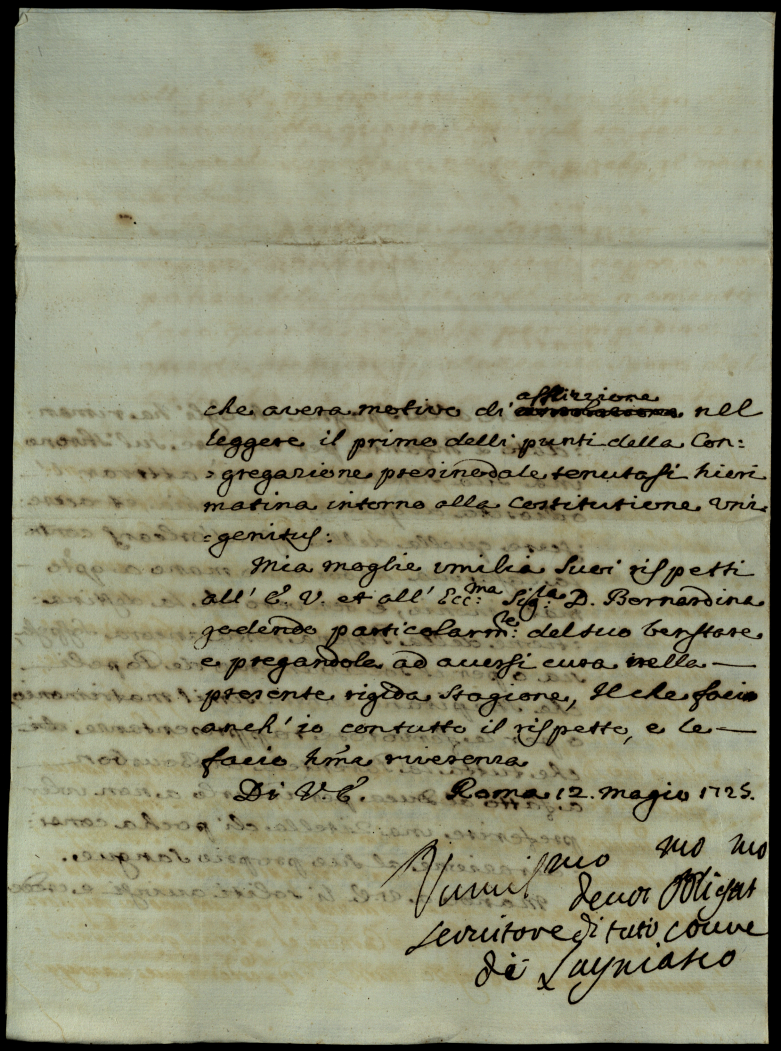 afflizzione
che avera motivo di nel
leggere il primo delli punti della Con:
:gregazione presinodale tenutasi hieri
matina intorno alla Costitutione Uni:
:genitus:
Mia moglie umilia suoi rispetti
all' E. V. et all' Ecc:ma Sig:ra D. Bernardina
godendo particolarm:te del suo benstare
e pregandola ad aversi cura nella —
presente rigida stagione, Il che facio
anch' io con tutto il rispetto, e le —
facio hma riverenza
Di V. E. Roma 12. Magio 1725.
mo mo mo
Vumil devot Obligat
servitore di tuto cuore
di Lagniasco